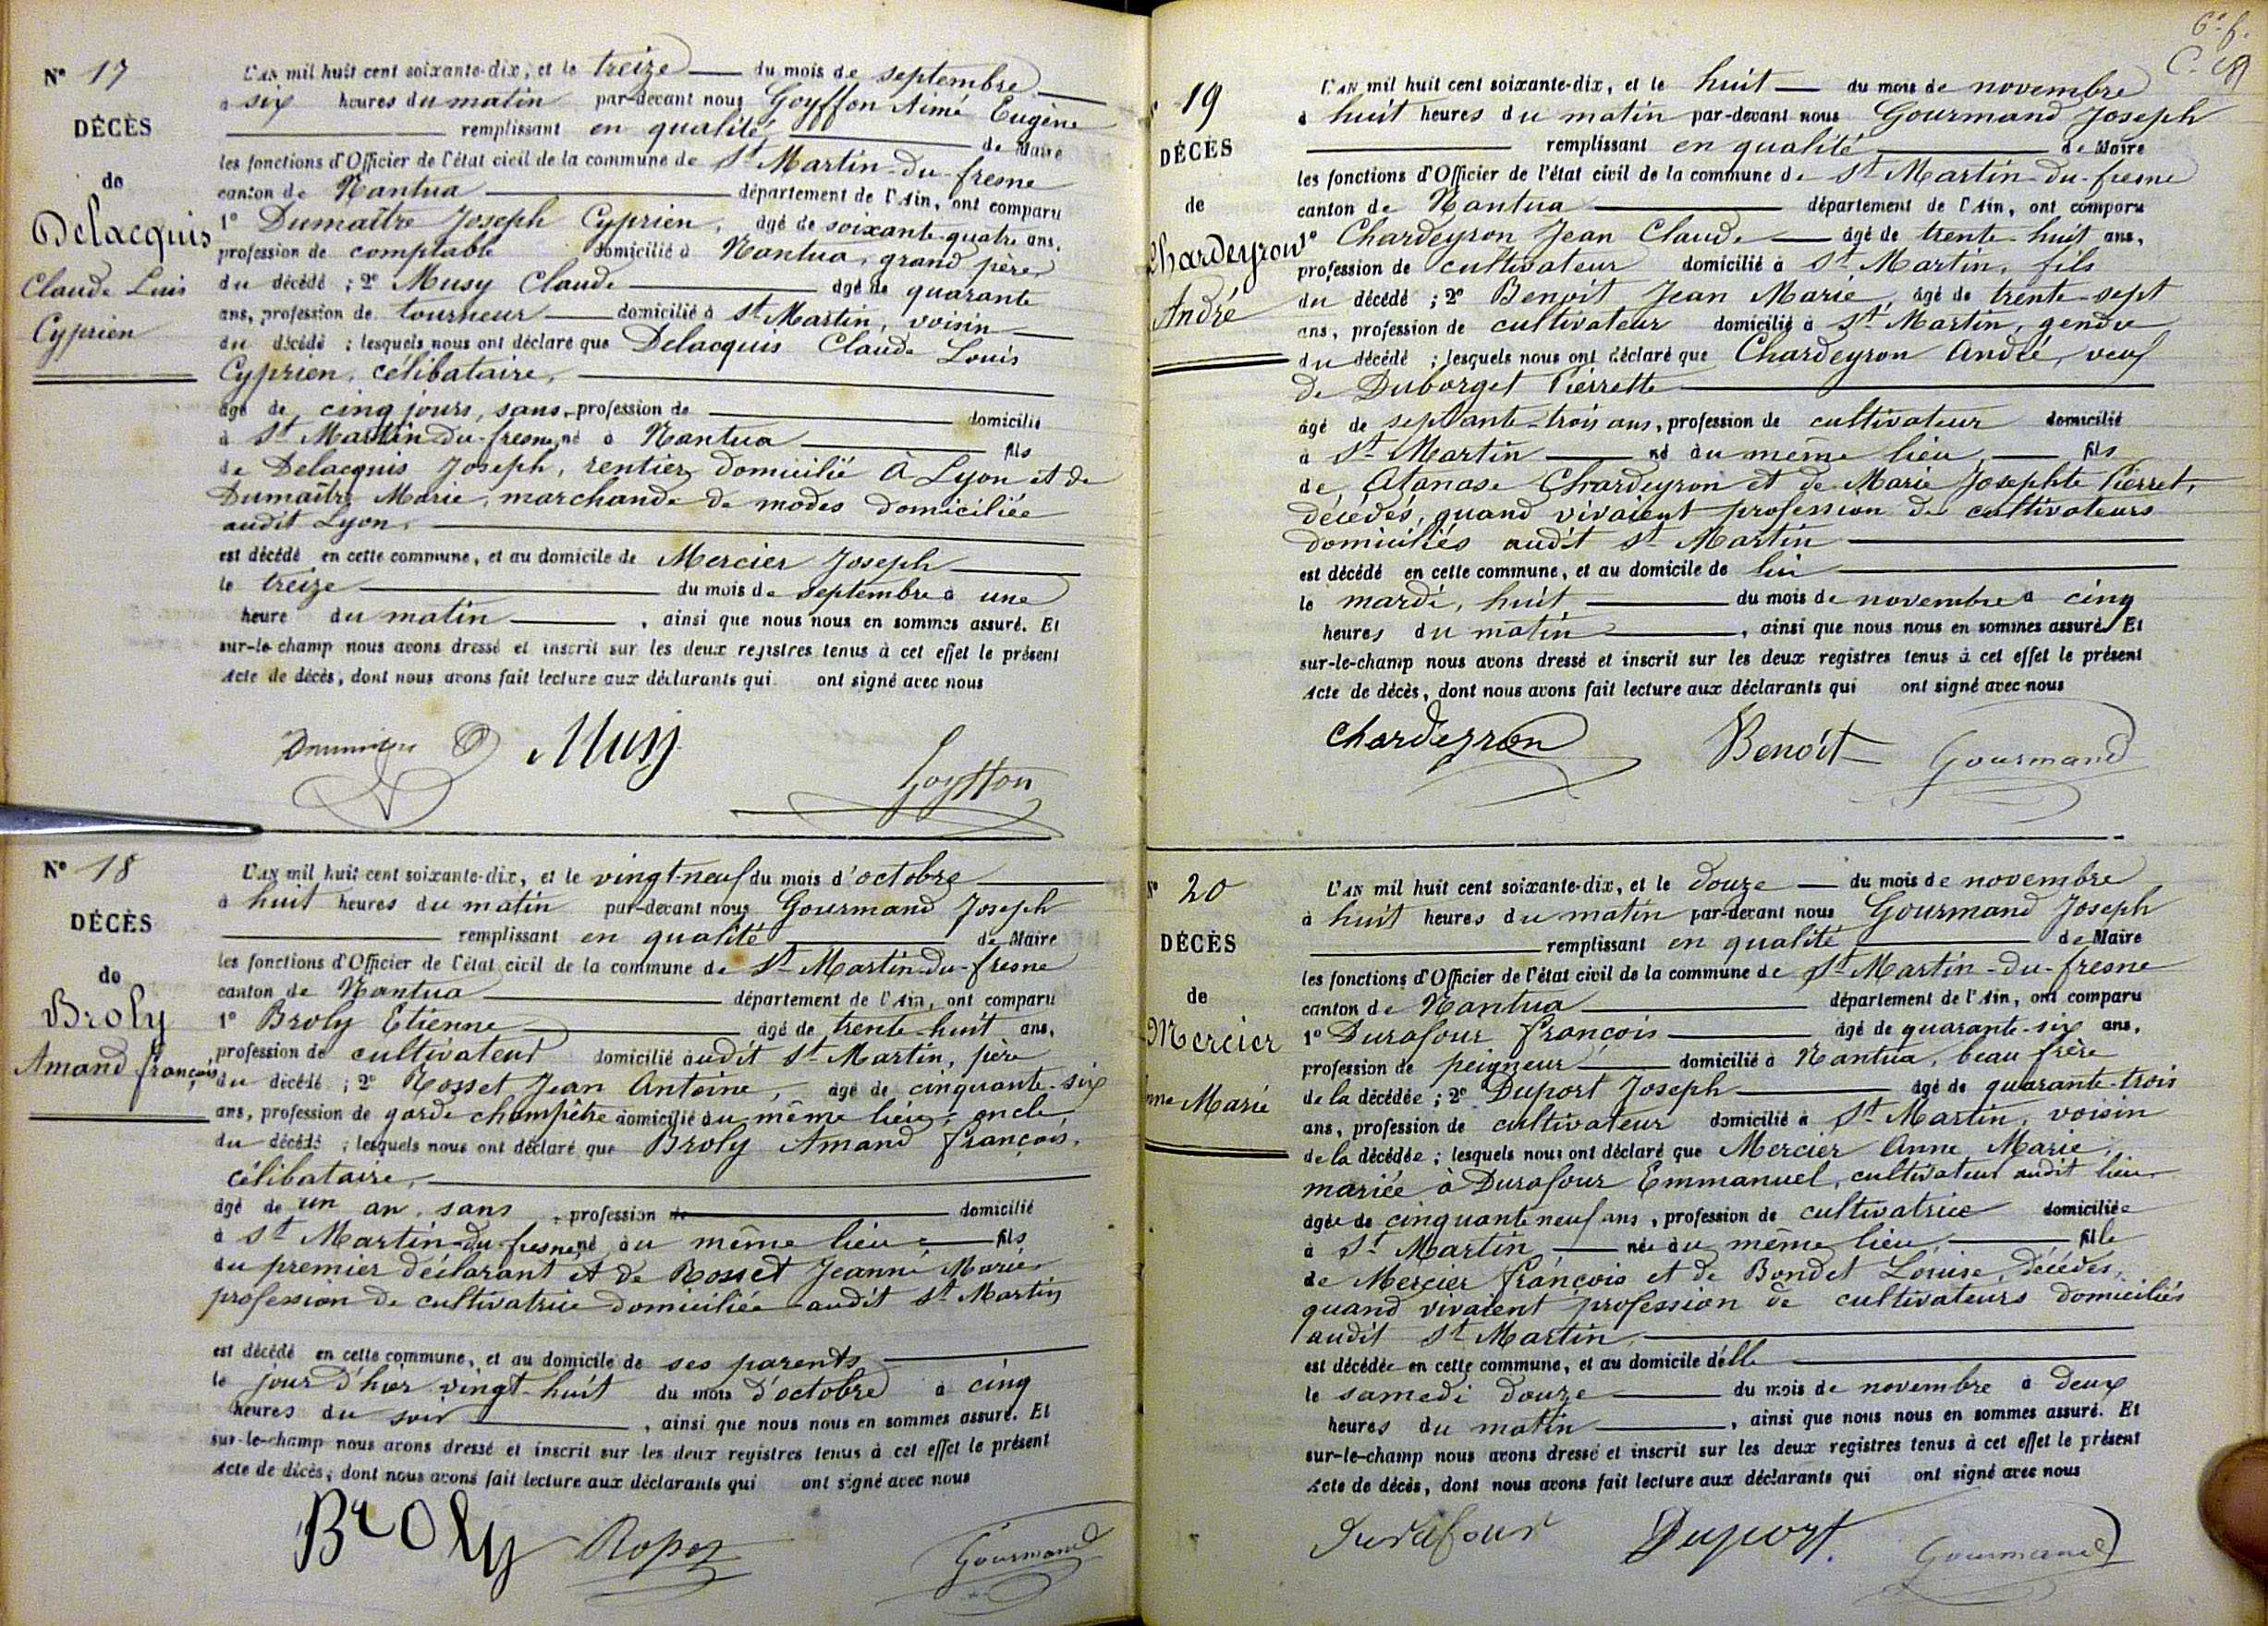 N° 17
DÉCÈS
de
Delacquis
Claude Luis
Cyprien
L'AN mil huit cent soixante-dix, et le treize du mois de septembre
à six heures du matin par-devant nous Goyffon Aimé Eugène
remplissant en qualité de Maire
les fonctions d'Officier de l'état civil de la commune de St Martin-du-fresne
canton de Nantua département de l'Ain, ont comparu
1° Dumaître Joseph Cyprien, âgé de soixante-quatre ans,
profession de comptable domicilié à Nantua, grand père
du décédé ; 2° Musy Claude âgé de quarante
ans, profession de tourneur domicilié à St Martin, voisin
du décédé ; lesquels nous ont déclaré que Delacquis Claude Louis
Cyprien, célibataire,
âgé de cinq jours, sans profession de domicilié
à St Martin-du-fresne, né à Nantua fils
de Delacquis Joseph, rentier domicilié à Lyon et de
Dumaître Marie, marchande de modes domiciliée
audit Lyon,
est décédé en cette commune, et au domicile de Mercier Joseph
le treize du mois de septembre à une
heure du matin, ainsi que nous nous en sommes assuré. Et
sur-le-champ nous avons dressé et inscrit sur les deux registres tenus à cet effet le présent
Acte de décès, dont nous avons fait lecture aux déclarants qui ont signé avec nous
Musy
Goyffon
N° 18
DÉCÈS
de
Broly
Amand françois
L'AN mil huit cent soixante-dix, et le vingt-neuf du mois d'octobre
à huit heures du matin par-devant nous Gourmand Joseph
remplissant en qualité de Maire
les fonctions d'Officier de l'état civil de la commune de St Martin-du-fresne
canton de Nantua département de l'Ain, ont comparu
1° Broly Etienne âgé de trente-huit ans,
profession de cultivateur domicilié audit St Martin, père
du décédé ; 2° Rosset Jean Antoine, âgé de cinquante-six
ans, profession de garde champêtre domicilié au même lieu, oncle
du décédé ; lesquels nous ont déclaré que Broly Amand françois,
célibataire,
âgé de un an, sans, profession de domicilié
à St Martin-du-fresne né au même lieu fils
du premier déclarant et de Rosset Jeanne Marie
profession de cultivatrice domiciliée audit St Martin
est décédé en cette commune, et au domicile de ses parents
le jour d'hier vingt-huit du mois d'octobre à cinq
heures du soir, ainsi que nous nous en sommes assuré. Et
sur-le-champ nous avons dressé et inscrit sur les deux registres tenus à cet effet le présent
Acte de décès, dont nous avons fait lecture aux déclarants qui ont signé avec nous
Broly Gourmand
19
DÉCÈS
de
Chardeyron
André
L'AN mil huit cent soixante-dix, et le huit du mois de novembre
à huit heures du matin par-devant nous Gourmand Joseph
remplissant en qualité de Maire
les fonctions d'Officier de l'état civil de la commune de St Martin-du-fresne
canton de Nantua département de l'Ain, ont comparu
1° Chardeyron Jean Claude âgé de trente-huit ans,
profession de cultivateur domicilié à St Martin, fils
du décédé ; 2° Benoît Jean Marie, âgé de trente-sept
ans, profession de cultivateur domicilié à St Martin, gendre
du décédé ; lesquels nous ont déclaré que Chardeyron André, veuf
de Duborget Pierrette
âgé de septante-trois ans, profession de cultivateur domicilié
à St Martin né au même lieu fils
de Atanase Chardeyron et de Marie Josephte Pierret,
décédés, quand vivaient profession de cultivateurs
domiciliés audit St Martin
est décédé en cette commune, et au domicile de lui
le mardi, huit du mois de novembre à cinq
heures du matin, ainsi que nous nous en sommes assuré. Et
sur-le-champ nous avons dressé et inscrit sur les deux registres tenus à cet effet le présent
Acte de décès, dont nous avons fait lecture aux déclarants qui ont signé avec nous
Chardeyron Benoît Gourmand
N° 20
DÉCÈS
de
Mercier
Marie
L'AN mil huit cent soixante-dix, et le douze du mois de novembre
à huit heures du matin par-devant nous Gourmand Joseph
remplissant en qualité de Maire
les fonctions d'Officier de l'état civil de la commune de St Martin-du-fresne
canton de Nantua département de l'Ain, ont comparu
1° Durafour françois âgé de quarante-six ans,
profession de peigneur domicilié à Nantua, beau frère
de la décédée ; 2° Duport Joseph âgé de quarante-trois
ans, profession de cultivateur domicilié à St Martin, voisin
de la décédée ; lesquels nous ont déclaré que Mercier Anne Marie,
mariée à Durafour Emmanuel, cultivateur audit lieu
âgée de cinquante neuf ans, profession de cultivatrice domiciliée
à St Martin née au même lieu, fille
de Mercier françois et de Bondet Louise, décédés,
quand vivaient profession de cultivateurs domiciliés
audit St Martin,
est décédée en cette commune, et au domicile d'elle
le samedi douze du mois de novembre à deux
heures du matin, ainsi que nous nous en sommes assuré. Et
sur-le-champ nous avons dressé et inscrit sur les deux registres tenus à cet effet le présent
Acte de décès, dont nous avons fait lecture aux déclarants qui ont signé avec nous
Durafour Duport Gourmand